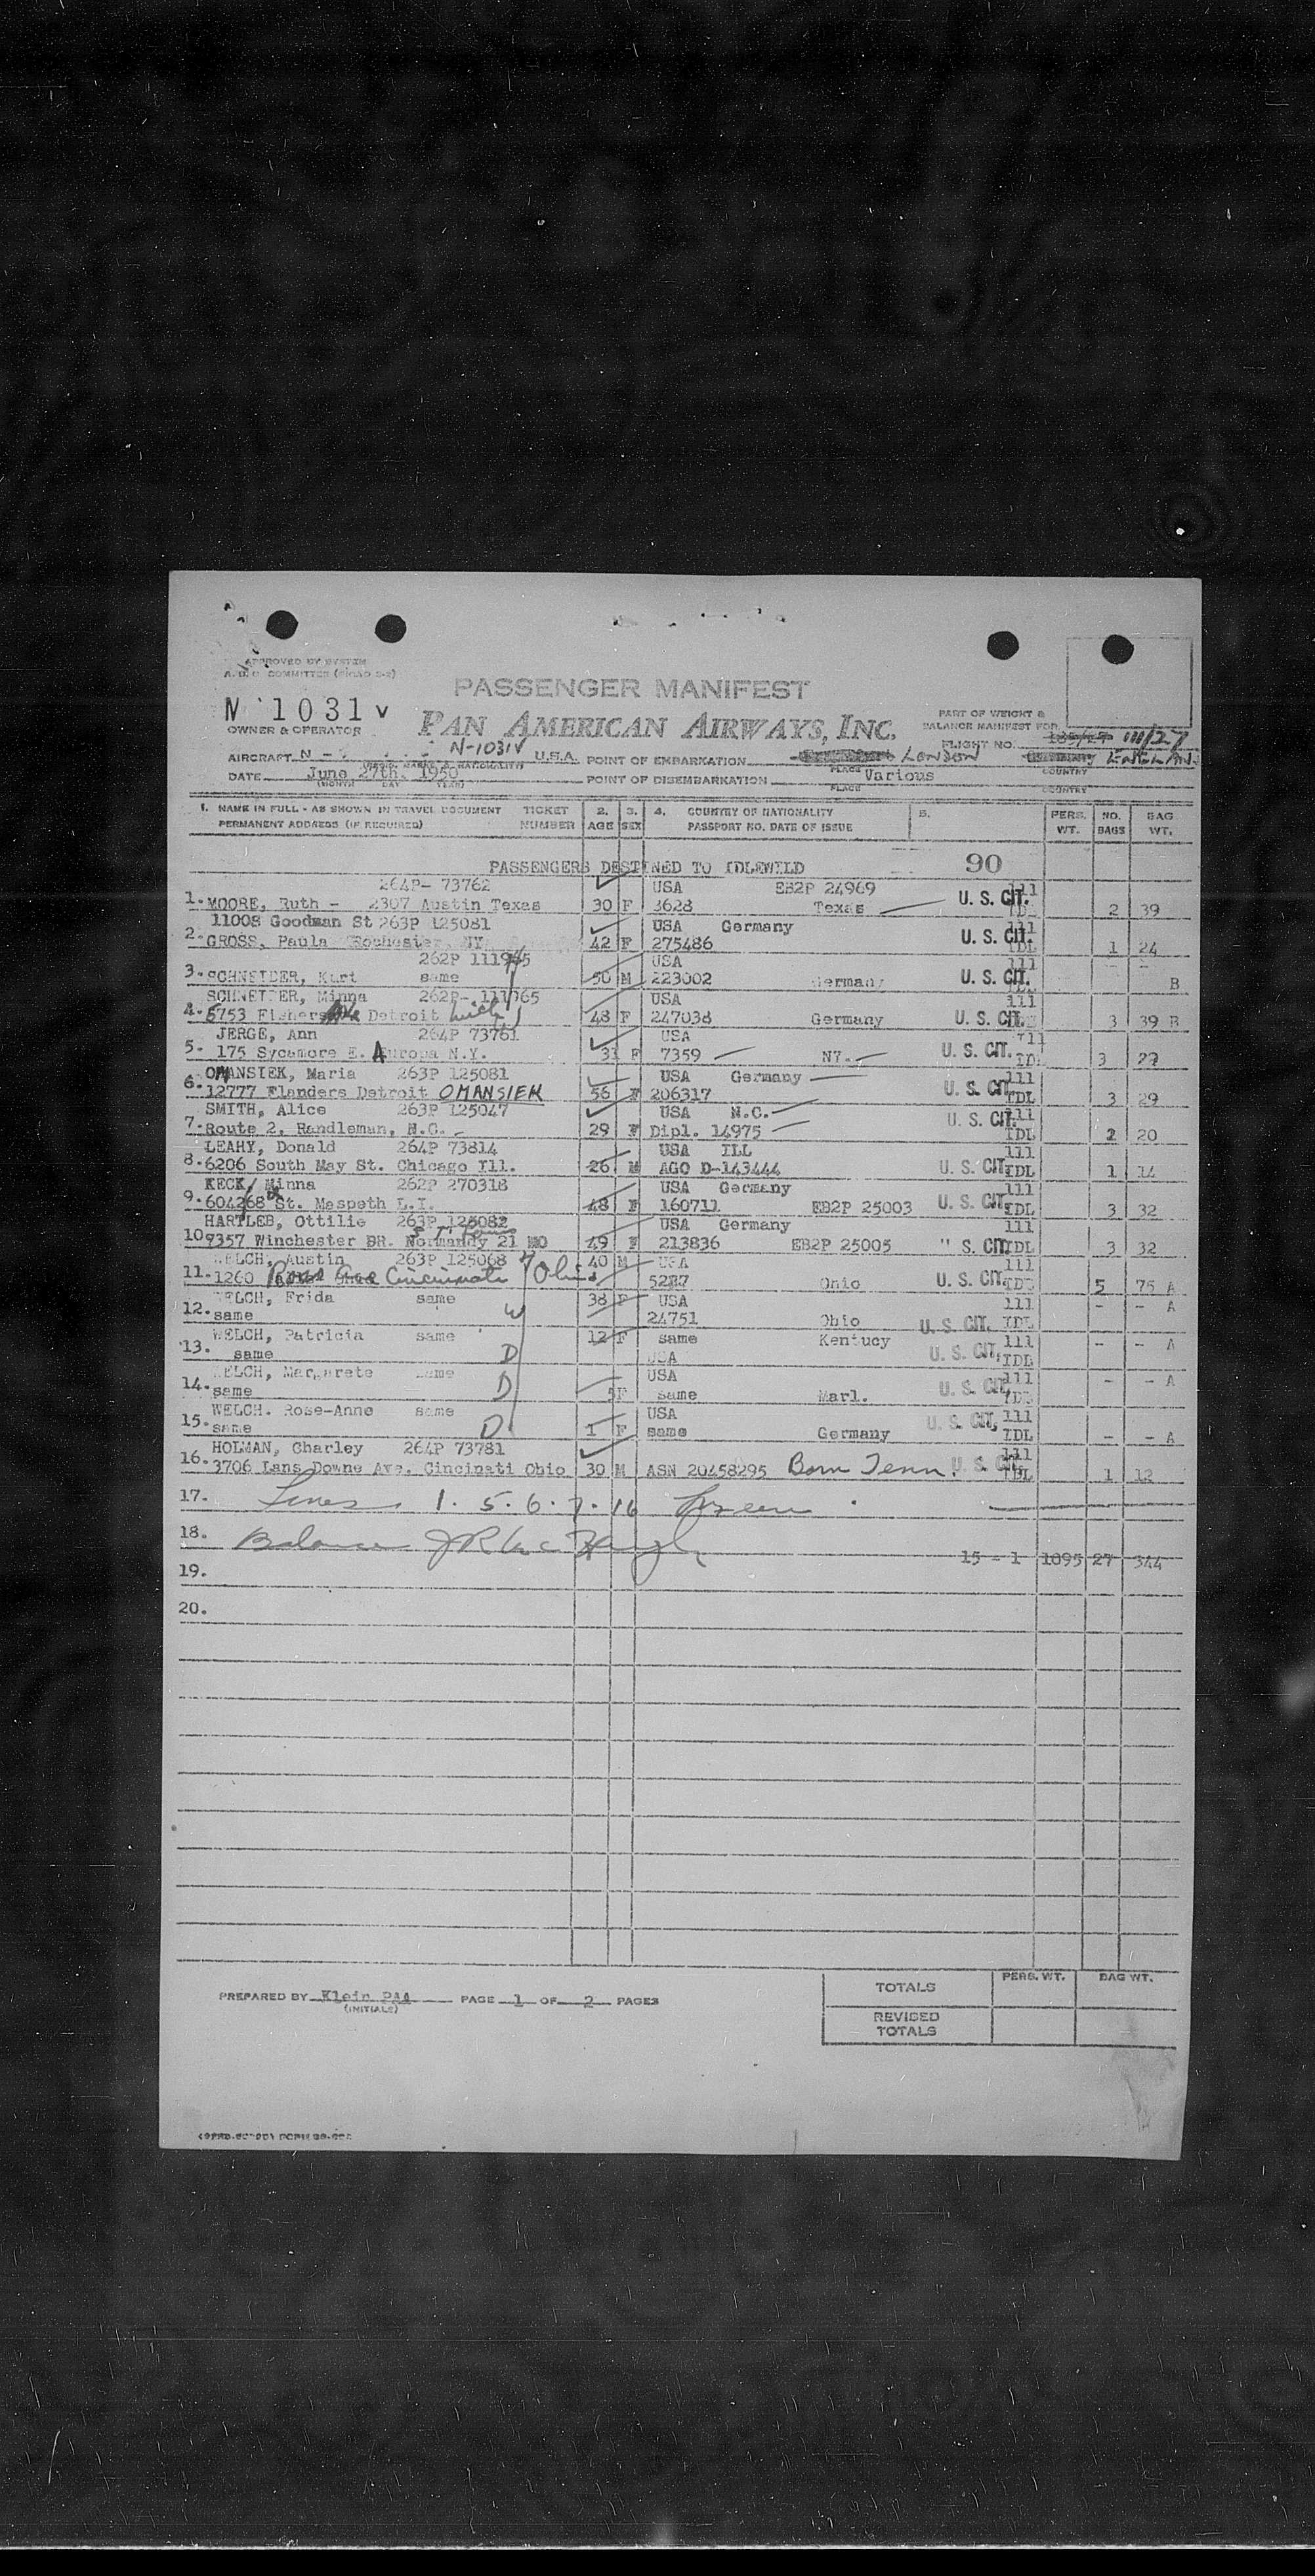 APPROVED BY SYSTEM
A.D.C. COMMITTEE
N 1031 V
OWNER & OPERATOR
PASSENGER MANIFEST
PAN AMERICAN AIRWAYS, INC.
PART OF WEIGHT &
BALANCE MANIFEST FOR
FLIGHT NO. 111/27
AIRCRAFT N - N-1031V U.S.A. POINT OF EMBARKATION LONDON ENGLAND
PLACE COUNTRY
DATE June 27th, 1950 POINT OF DISEMBARKATION Various
(MONTH DAY YEAR) PLACE COUNTRY
1. NAME IN FULL - AS SHOWN IN TRAVEL DOCUMENT TICKET 2. 3. 4. COUNTRY OF NATIONALITY 5. PERS. NO. BAG
PERMANENT ADDRESS (IF REQUIRED) NUMBER AGE SEX PASSPORT NO. DATE OF ISSUE WT. BAGS WT.
PASSENGERS DESTINED TO IDLEWILD 90
264P- 73762 USA EB2P 24969 111
1. MOORE, Ruth - 2307 Austin Texas 30 F 3628 Texas U. S. CIT. IDL 2 39
11008 Goodman St 263P 125081 USA Germany 111
2. GROSS, Paula Rochester, NY 42 F 275486 U. S. CIT. IDL 1 24
262P 111965 USA 111
3. SCHNEIDER, Kurt same 50 M 223002 Germany U. S. CIT. - - B
SCHNEIDER, Minna 262P- 111965 USA 111
4. 5753 Fishers Ave Detroit Mich 48 F 247038 Germany U. S. CIT. 3 39 B
JERGE, Ann 264P 73761 USA 111
5. 175 Sycamore E. Auropa N.Y. 31 F 7359 NY. U. S. CIT. IDL 3 29
OMANSIEK, Maria 263P 125081 USA Germany 111
6. 12777 Flanders Detroit OMANSIEK 56 F 206317 U. S. CIT. IDL 3 29
SMITH, Alice 263P 125047 USA N.C. 111
7. Route 2, Randleman, N.C. 29 F Dipl. 14975 U. S. CIT. IDL 2 20
LEAHY, Donald 264P 73814 USA ILL 111
8. 6206 South May St. Chicago Ill. 26 M AGO D-143444 U. S. CIT. IDL 1 14
KECK, Minna 262P 270318 USA Germany 111
9. 604268 St. Maspeth L.I. 48 F 160711 EB2P 25003 U. S. CIT. IDL 3 32
HARTLEB, Ottilie 263P 125082 USA Germany 111
10. 9357 Winchester DR. Normandy 21 MO 49 F 213836 EB2P 25005 " S. CIT. IDL 3 32
WELCH, Austin 263P 125068 40 M USA 111
11. 1260 Ave Cincinnati Ohio 5287 Ohio U. S. CIT. IDL 5 75 A
WELCH, Frida same 38 F USA 111 - - A
12. same W 24751 Ohio U. S. CIT. IDL
WELCH, Patricia same 12 F same Kentucy 111 - - A
13. same D USA U. S. CIT. IDL
WELCH, Margarete same USA 111 - - A
14. same D 5 F same Marl. U. S. CIT. IDL
WELCH. Rose-Anne same USA 111
15. same D 1 F same Germany U. S. CIT. IDL - - A
HOLMAN, Charley 264P 73781 111
16. 3706 Lans Downe Ave. Cincinati Ohio 30 M ASN 20458295 Born Tenn. U. S. CIT. IDL 1 12
17. Lines 1. 5. 6. 7. 16
18. Balance
15 - 1 1095 27 344
19.
20.
PREPARED BY Klein PAA PAGE 1 OF 2 PAGES
(INITIALS)
PERS. WT. BAG WT.
TOTALS
REVISED
TOTALS